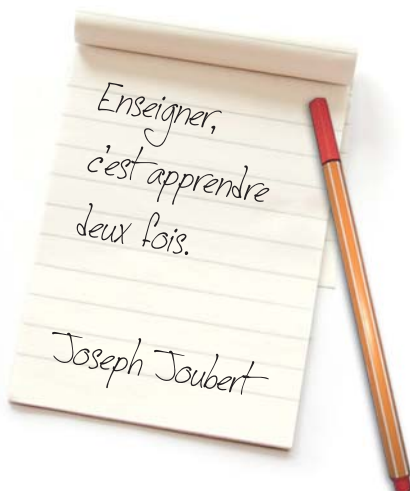 Enseigner,
c'est apprendre
deux fois.
Joseph Joubert